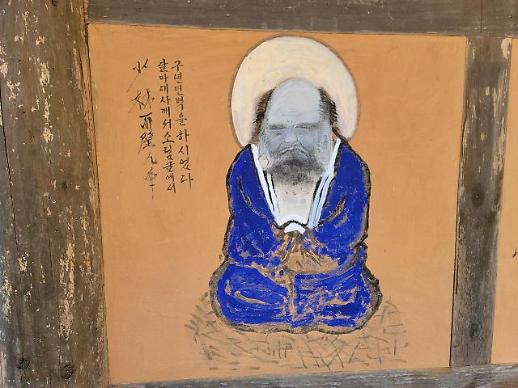 구년면벽을 하시었다
달마대사께서 소림굴에서
少林面壁九年